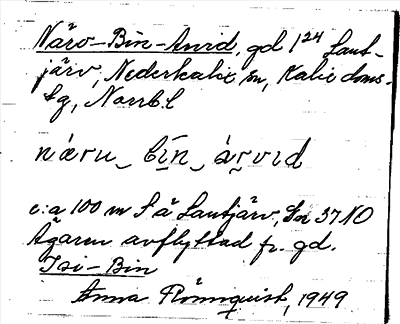 Närv-Bin-Arvid, gd 1²⁴ Lant-
järv, Nederkalix sn, Kalix doms-
sg, Norrb. l
näru bin arvid
c:a 100 m S ä Lantjärv, 37 NO
Ägaren avflyttad fr. gd.
Isi-Bin
Anna Rönnquist, 1949